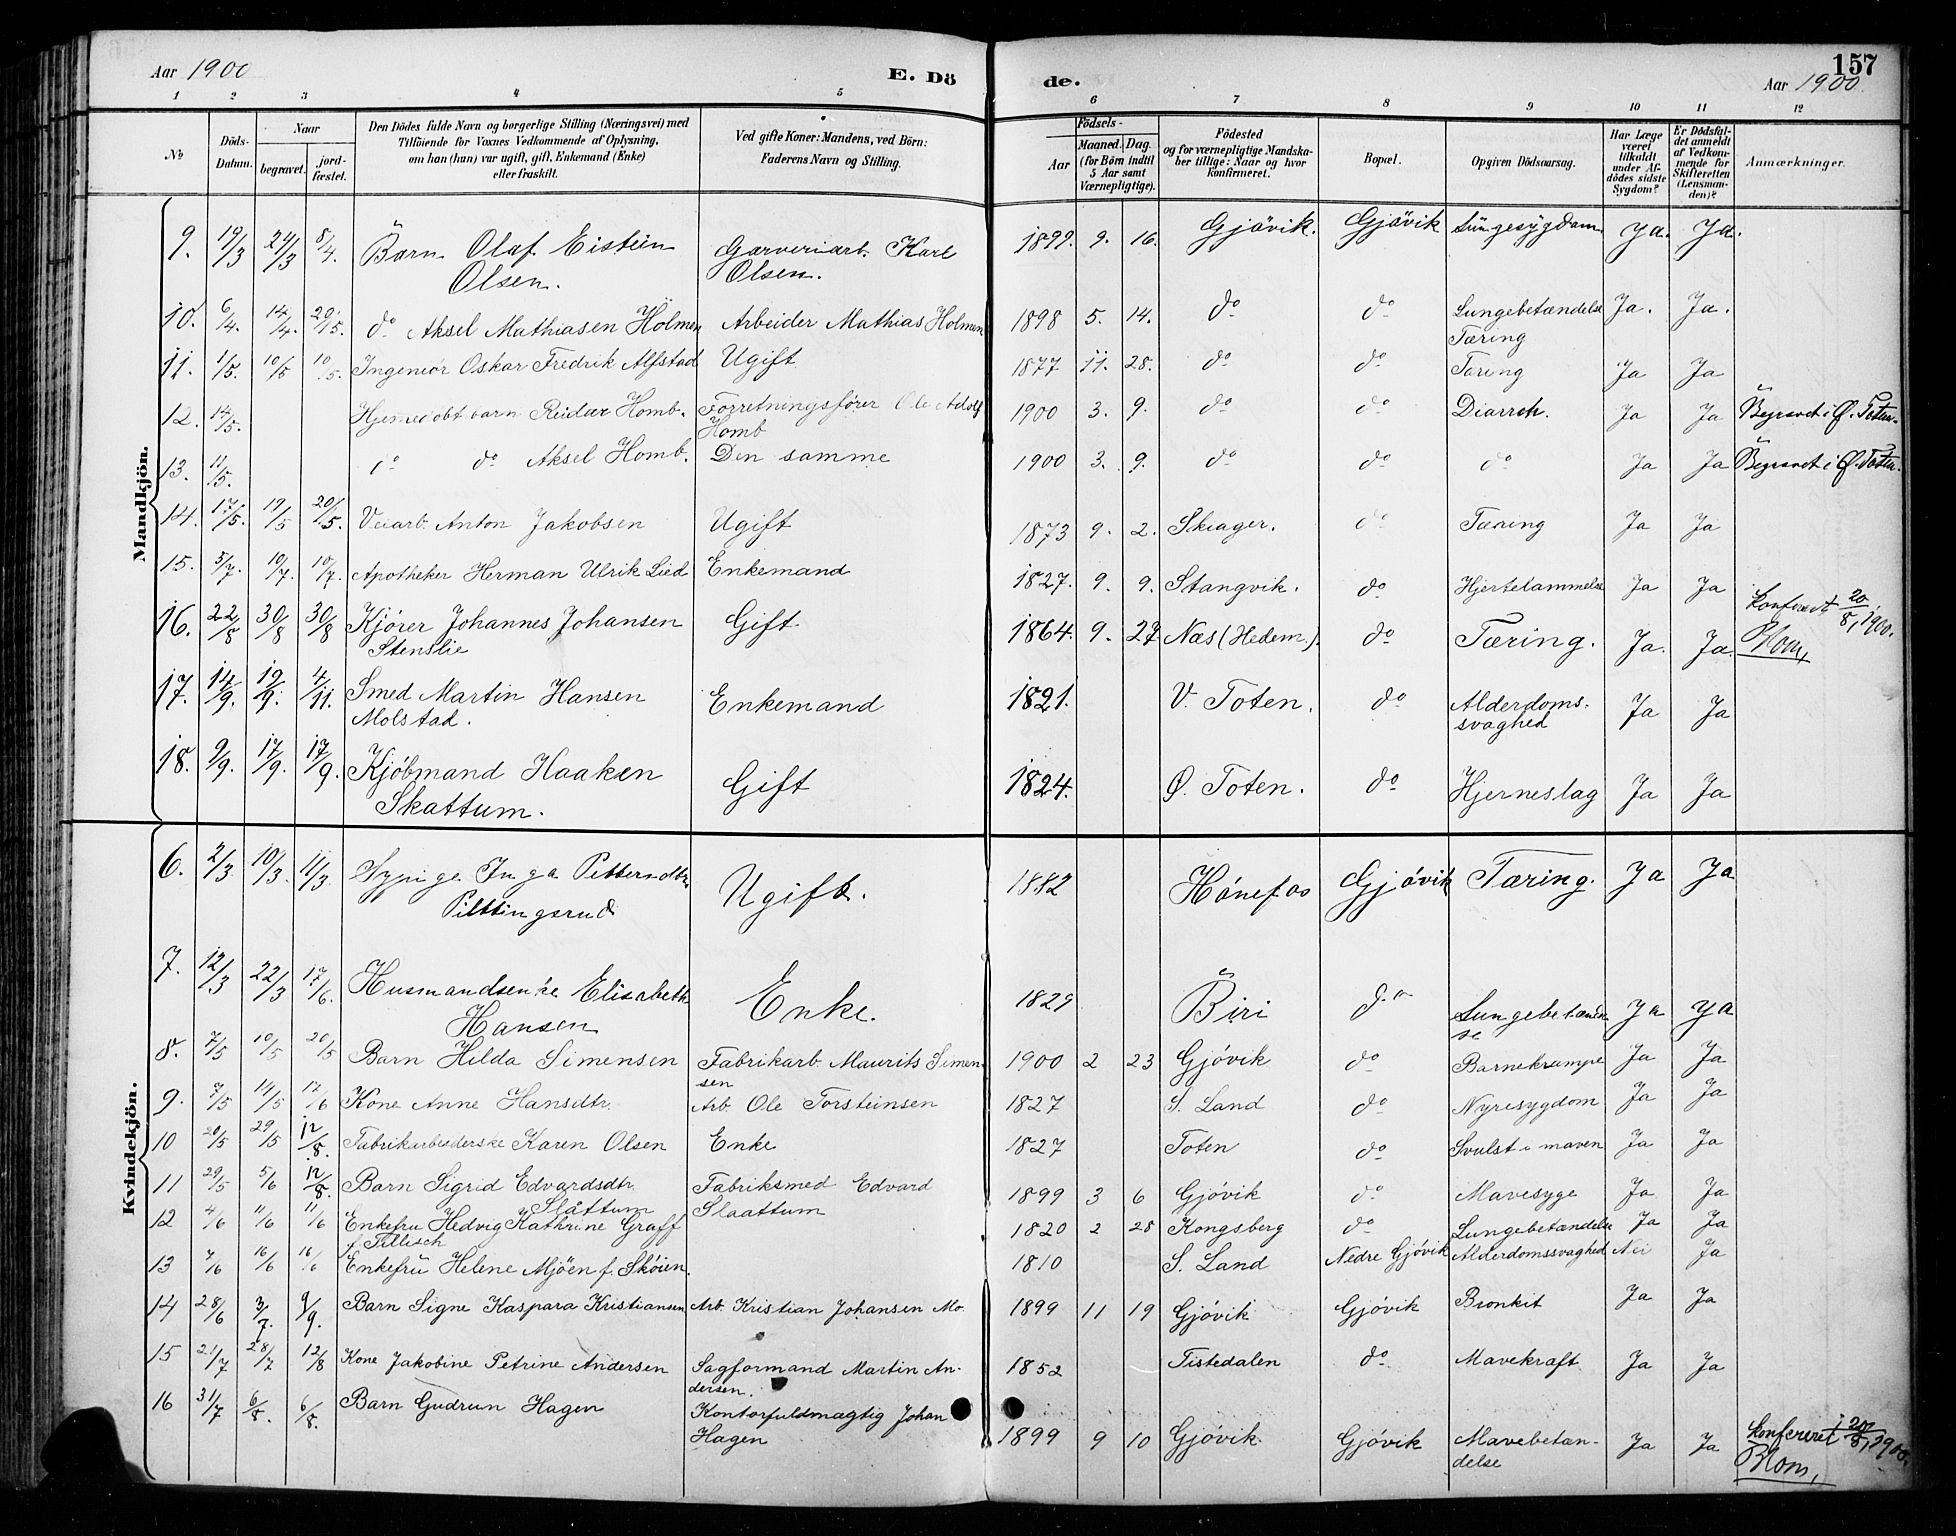 Aar 1900 E. Dö de. 157
Aar 1900.
1 2 3 4 5 6 7 8 9 10 11 12
No
Döds-Datum.
Naar
begravet.
jord-fæstet.
Den Dödes fulde Navn og borgerlige Stilling (Næringsvei) med
Tilföiende for Voxnes Vedkommende af Oplysning,
om han (hun) var ugift, gift, Enkemand (Enke)
eller fraskilt.
Ved gifte Koner: Mandens, ved Börn:
Faderens Navn og Stilling.
Födsels-
Aar
Maaned. Dag.
(for Börn indtil
5 Aar samt
Værnepligtige).
Födested
og for værnepligtige Mandska-
ber tillige: Naar og hvor
konfirmeret.
Bopæl.
Opgiven Dödsaarsag.
Har Læge
været
tilkaldt
under Af-
dödes sidste
Sygdom?
Er Dödsfal-
det anmeldt
af Vedkom-
mende for
Skifteretten
(Lensman-
den)?
Anmærkninger.
Mandkjön.
9. 19/3 24/3 8/4. Barn Olaf Eistein Garveriarb. Karl 1899. 9. 16. Gjövik. Gjövik Lungesygdom Ja. Ja.
Olsen. Olsen.
10. 6/4. 14/4. 20/5. do Aksel Mathiasen Holmen Arbeider Mathias Holmen 1898 5. 14. do do Lungebetændelse Ja. Ja.
Tæring
11. 1/5. 10/5 10/5. Ingeniör Oskar Fredrik Alfstad Ugift 1877 11. 28. do do Tæring Ja Ja
12. 14/5. Hjemedöbt barn Reidar Homb. Forretningsförer Ole Adolf 1900 3. 9. do do Diarroh. Ja Ja Begravet i Ø. Toten.
Homb
13. 11/5. do do Aksel Homb. Den samme 1900 3. 9. do do do Ja Ja Begravet i Ø. Toten.
14. 17/5. 19/5 20/5. Veiarb. Anton Jakobsen Ugift 1873 9. 2. Skiager. do Tæring Ja Ja
15. 5/7. 10/7. 10/7. Apotheker Herman Ulrik Lied Enkemand 1827. 9. 9. Stangvik. do Hjertelammelse Ja Ja
16. 22/8 30/8 30/8 Kjörer Johannes Johansen Gift 1864. 9. 27 Næs (Hedem.). do Tæring. Ja. Ja. Konfereret 20/8, 1900.
Stenslie Blom,
17. 14/9. 19/9. 4/11. Smed Martin Hansen Enkemand 1821. V. Toten. do Alderdoms- Ja Ja
Molstad. svaghed
18. 9/9. 17/9. 17/9. Kjöbmand Haaken Gift 1824. Ø. Toten. do Hjerneslag Ja Ja
Skattum.
Kvindekjön.
6. 2/3 10/3. 11/3. Sypige Inga Pettersdtr. Ugift. 1882 Hönefos Gjövik Tæring. Ja Ja
Pilttingsrud
7. 12/3 22/3 17/6. Husmandsenke Elisabeth Enke. 1829 Biri do Lungebetænd Ja Ja
Hansen se
8. 7/5 10/5 20/5 Barn Hilda Simensen Fabrikarb. Maurits Simen- 1900 2 23 Gjövik do Barnekrampe Ja Ja
sen
9. 7/5 14/5 17/6 Kone Anne Hansdtr. Arb. Ole Torsteinsen 1827 S. Land do Nyresygdom Ja Ja
10 20/5 29/5 12/8. Fabrikarbeiderske Karen Olsen Enke 1827 Toten do Svulst i maven Ja Ja
11 29/5 5/6 12/8. Barn Sigrid Edvardsdtr. Fabriksmed Edvard 1899 3 6 Gjövik do Mavesyge Ja Ja
Slåttum Slaattum
12 4/6 11/6 11/6 Enkefru Hedvig Kathrine Graff 1820 2 28 Kongsberg do Lungebetændelse Ja Ja
f. Tillisch
13 7/6 16/6 16/6 Enkefru Helene Mjöen f. Sköien. 1810 S. Land Nedre Gjövik Alderdomssvaghed Nei Ja
14 28/6 3/7. 9/9. Barn Signe Kaspara Kristiansen Arb. Kristian Johansen Mo. 1899 11 19 Gjövik Gjövik Bronkit Ja Ja
15 21/7 28/7 12/8 Kone Jakobine Petrine Andersen Sagformand Martin An- 1852 Tistedalen do Mavekræft Ja Ja
dersen.
16 31/7 6/8. 6/8. Barn Gudrun Hagen Kontorfuldmægtig Johan 1899 9 10 Gjövik Gjövik Mavebetæn- Ja Ja Konfereret 20/8, 1900.
Hagen delse Blom,